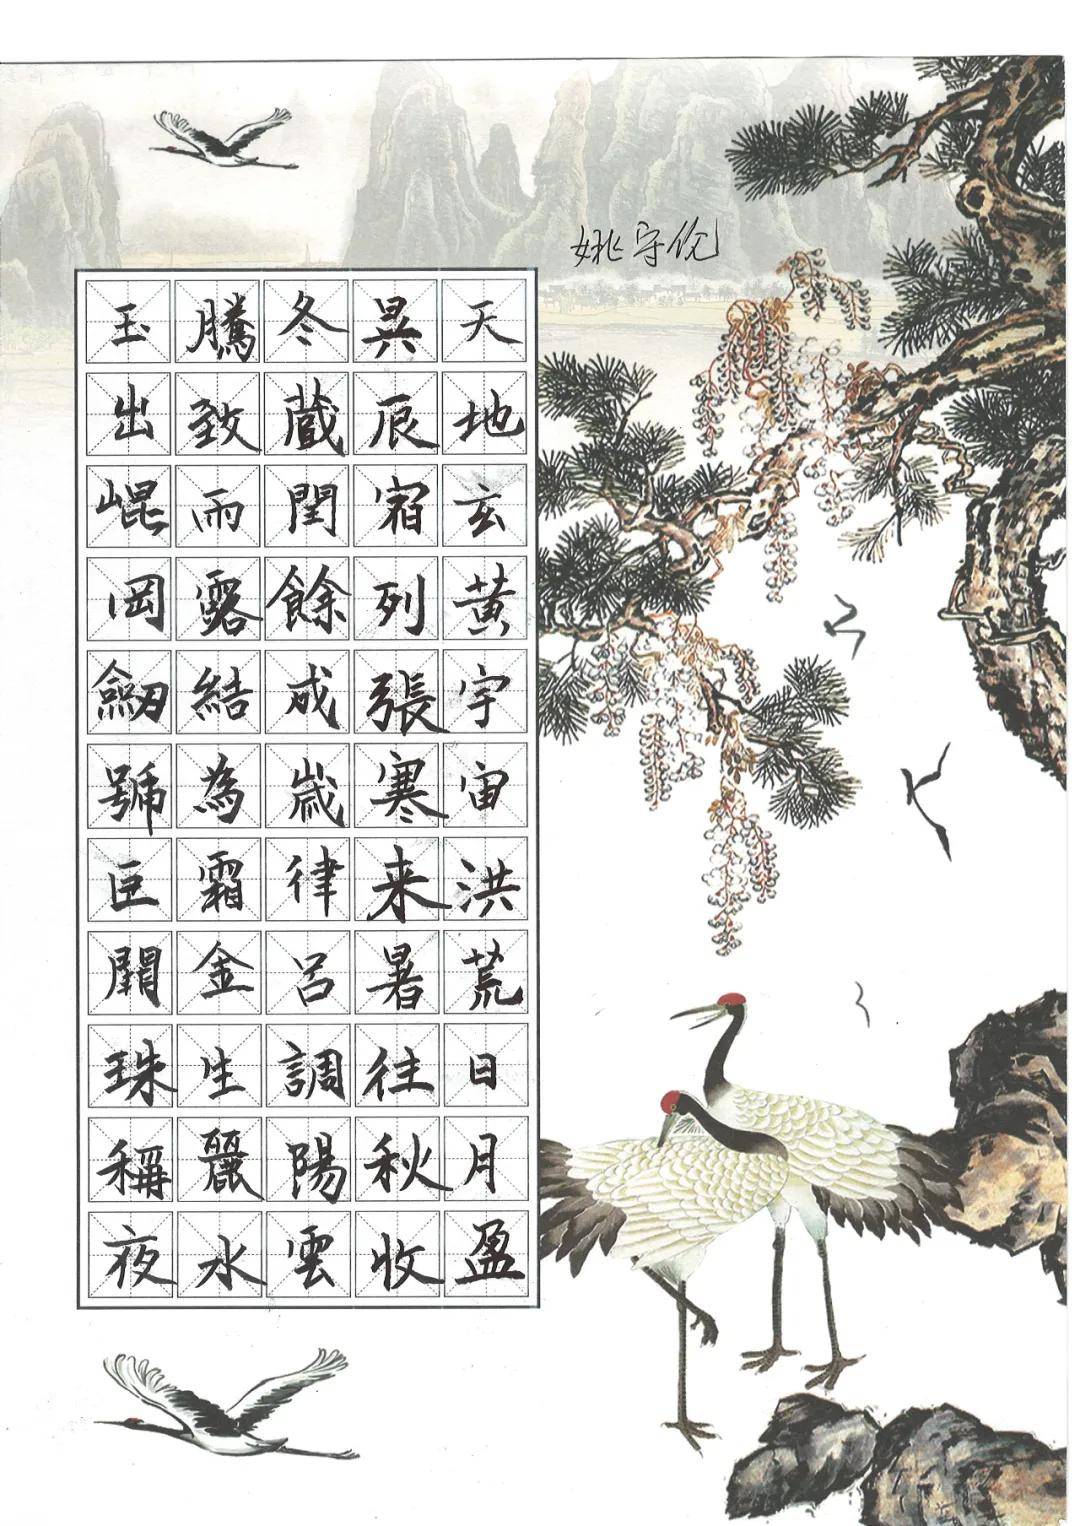 姚守伦
天地玄黄宇宙洪荒日月盈
昃辰宿列張寒来暑往秋收
冬蔵閏餘成歲律呂調陽雲
騰致雨露結為霜金生麗水
玉出崐岡劒號巨闕珠稱夜